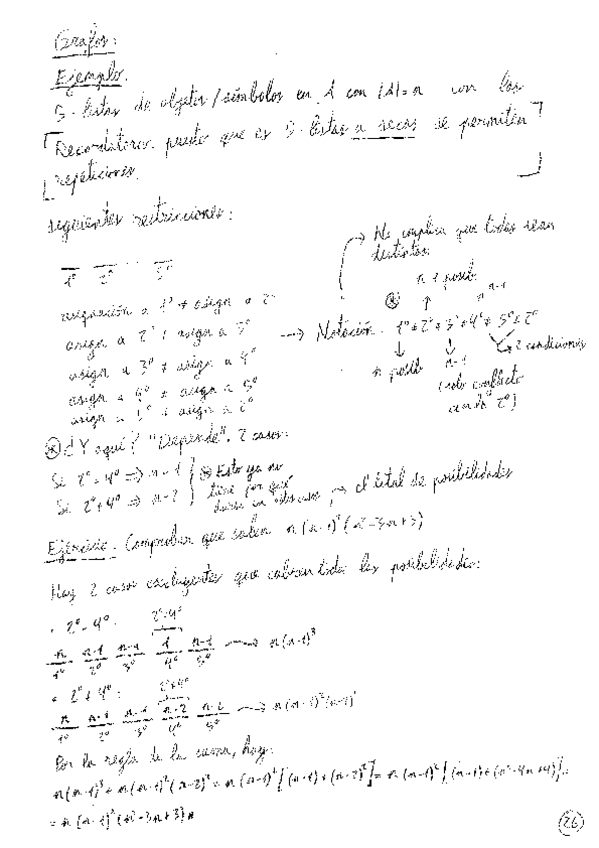 Grafos:
Ejemplo.
5-listas de objetos/símbolos en A con |A|=n con las
[Recordatorio: puesto que es 5-listas a secas se permiten
repeticiones.]
siguientes restricciones:
1º 2º 5º
asignación a 1º ≠ asign a 2º
asign a 2º ≠ asign a 3º
asign a 3º ≠ asign a 4º
asign a 4º ≠ asign a 5º
asign a 5º ≠ asign a 2º
No implica que todos sean
distintos.
n-1 posib.
n-1
→ Notación. 1º≠2º≠3º≠4º≠5º≠2º
2 condiciones
n posib n-1
(solo conflicto
con la 2º)
⊛ ¿Y aquí? "Depende". 2 casos:
Si 2º=4º ⇒ n-1
Si 2º≠4º ⇒ n-2
⊛ Esto ya no
tiene por qué
darse en otros casos
→ el total de posibilidades
Ejercicio. Comprobar que salen n(n-1)²(n²-3n+3)
Hay 2 casos excluyentes que cubren todas las posibilidades:
· 2º=4º: 2º=4º
n n-1 n-1 1 n-1 → n(n-1)³
1º 2º 3º 4º 5º
· 2º≠4º: 2º≠4º
n n-1 n-1 n-2 n-2 → n(n-1)²(n-2)²
1º 2º 3º 4º 5º
Por la regla de la suma, hay:
n(n-1)³+n(n-1)²(n-2)²=n(n-1)²[(n-1)+(n-2)²]=n(n-1)²[(n-1)+(n²-4n+4)]=
=n(n-1)²(n²-3n+3)
26